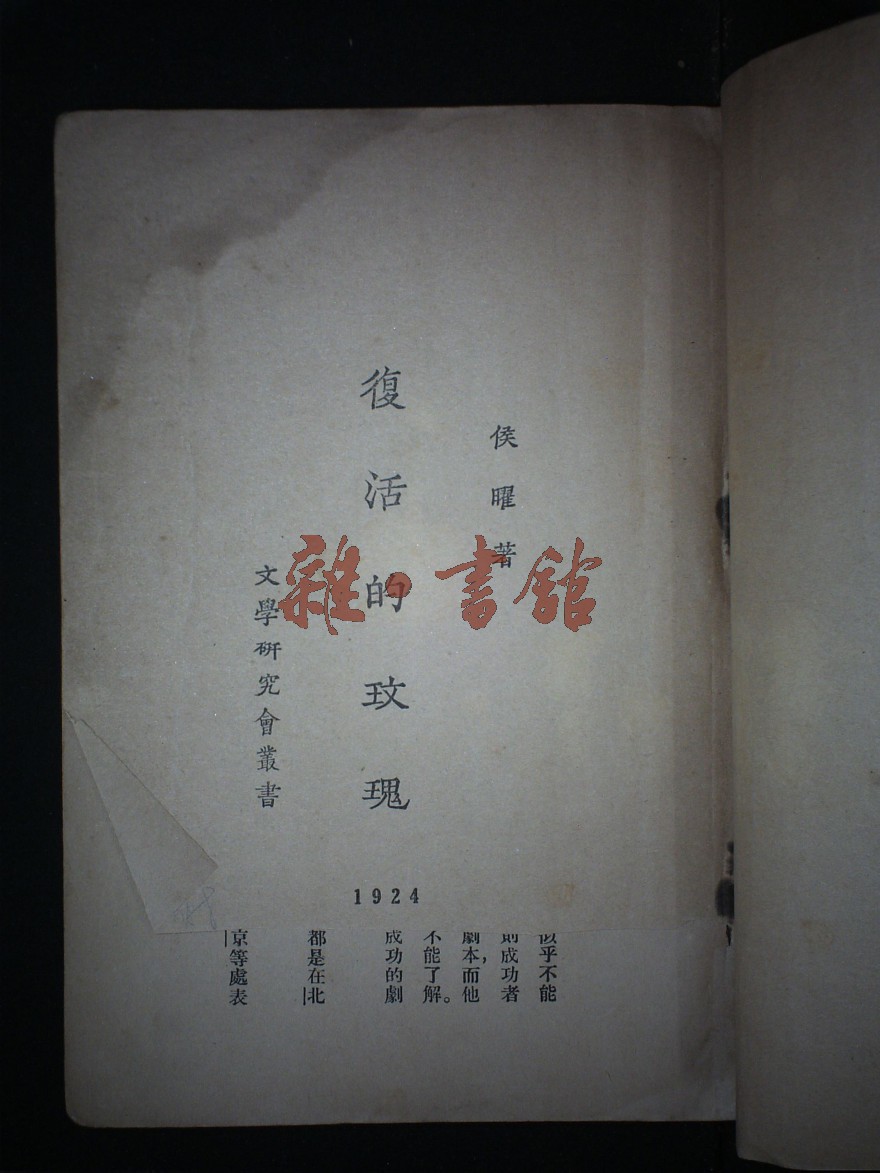 侯曜著
復活的玫瑰
文學研究會叢書
1924
似乎不能
則成功者
劇本，而他
不能了解。
成功的劇
都是在北
京等處表
雜·書館